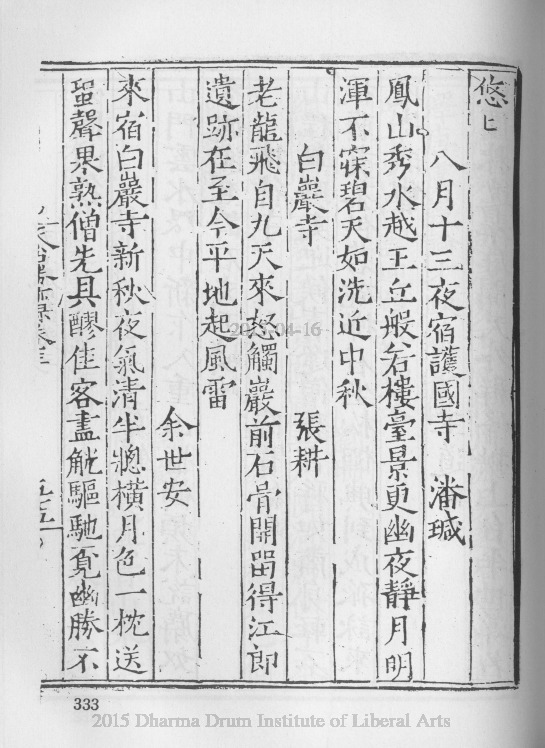 悠匕
八月十三夜宿護國寺 潘珹
鳳山秀水越王丘般若樓臺景更幽夜靜月明
渾不寐碧天如洗近中秋
白巖寺 張耕
老龍飛自九天來怒觸巖前石骨開畱得江郎
遺跡在至今平地起風雷
余世安
來宿白巖寺新秋夜氣清半牕橫月色一枕送
蛩聲果熟僧先具醪佳客盡觥驅馳覓幽勝不
333
2015-04-16
2015 Dharma Drum Institute of Liberal Arts